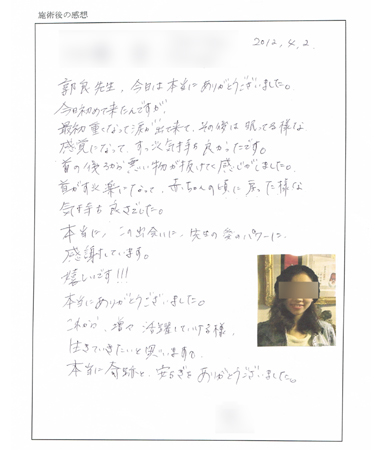 施術後の感想
2012, 4, 2
郭良先生、今日は本当にありがとうございました。
今日初めて来たんですが
最初重くなって涙が出て来て、その後は眠ってる様な
感覚になって、すっごく気持ち良かったです。
首の後ろから悪い物が抜けてく感じがしました。
首がすごく楽になって、赤ちゃんの頃に戻った様な
気持ち良さでした。
本当に、この出会いに、先生の気のパワーに
感謝しています。
嬉しいです!!!
本当にありがとうございました。
これから、増々活躍していける様、
生きていきたいと思います。
本当に奇跡と、安らぎをありがとうございました。